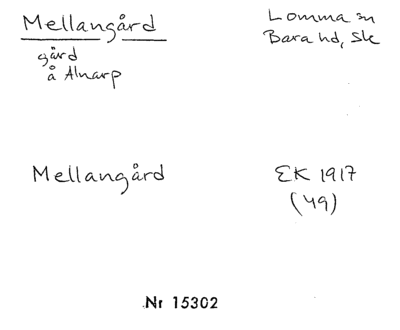 Mellangård
gård
å Alnarp
Lomma sn
Bara hd, Sk
Mellangård
EK 1917
(49)
Nr 15302